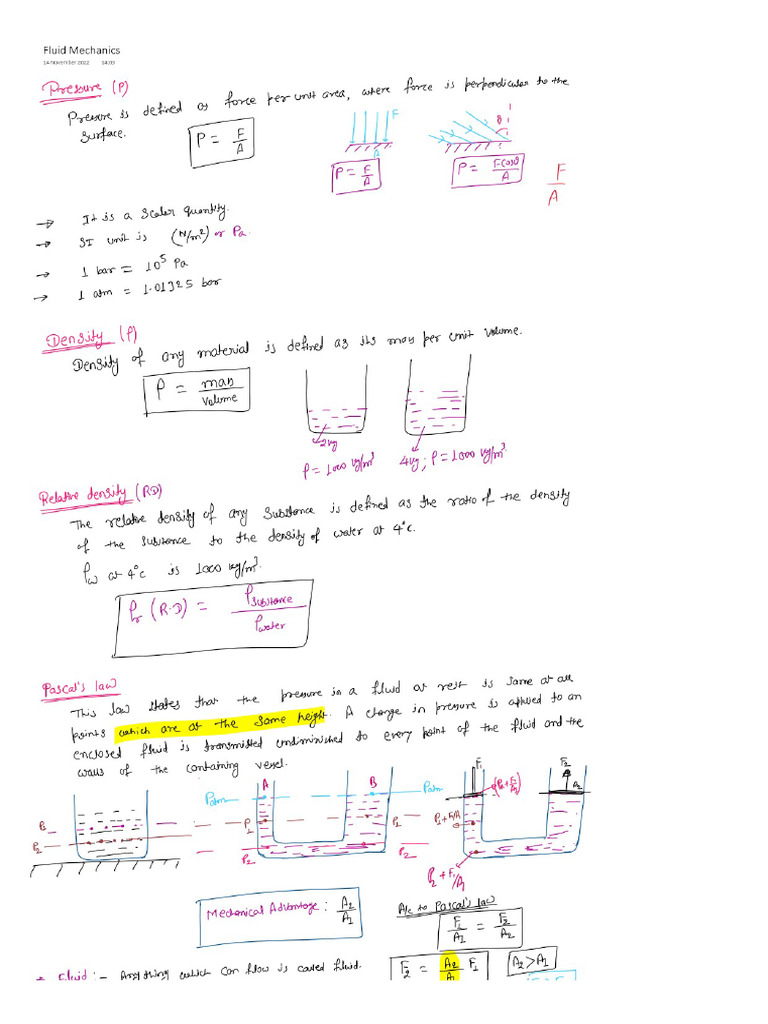 Fluid Mechanics
14 November 2022 14:03
Pressure (P)
Pressure is defined as force per unit area, where force is perpendicular to the
surface.
P = F/A
F
A
P = F/A
θ
P = Fcosθ/A
F/A
→ It is a scalar quantity.
→ SI unit is (N/m²) or Pa.
→ 1 bar = 10⁵ Pa
→ 1 atm = 1.01325 bar
Density (ρ)
Density of any material is defined as its mass per unit volume.
ρ = mass/volume
2kg
ρ = 1000 kg/m³
4kg; ρ = 1000 kg/m³.
Relative density (RD)
The relative density of any substance is defined as the ratio of the density
of the substance to the density of water at 4°c.
ρw at 4°c is 1000 kg/m³.
ρr (R.D) = ρsubstance/ρwater
Pascal's law
This law states that the pressure in a fluid at rest is same at all
points which are at the same height. A change in pressure is applied to an
enclosed fluid is transmitted undiminished to every point of the fluid and the
walls of the containing vessel.
P₁
P₂
A B
Patm Patm
P₁ P₁
P₂ P₂
F₁ F₂
A₂
P₁ + F/A
P₂ + F₁/A₁
Mechanical Advantage: A₂/A₁
A/c to Pascal's law
F₁/A₁ = F₂/A₂
F₂ = A₂/A₁ F₁
A₂ > A₁
Fluid :- Anything which can flow is called fluid.